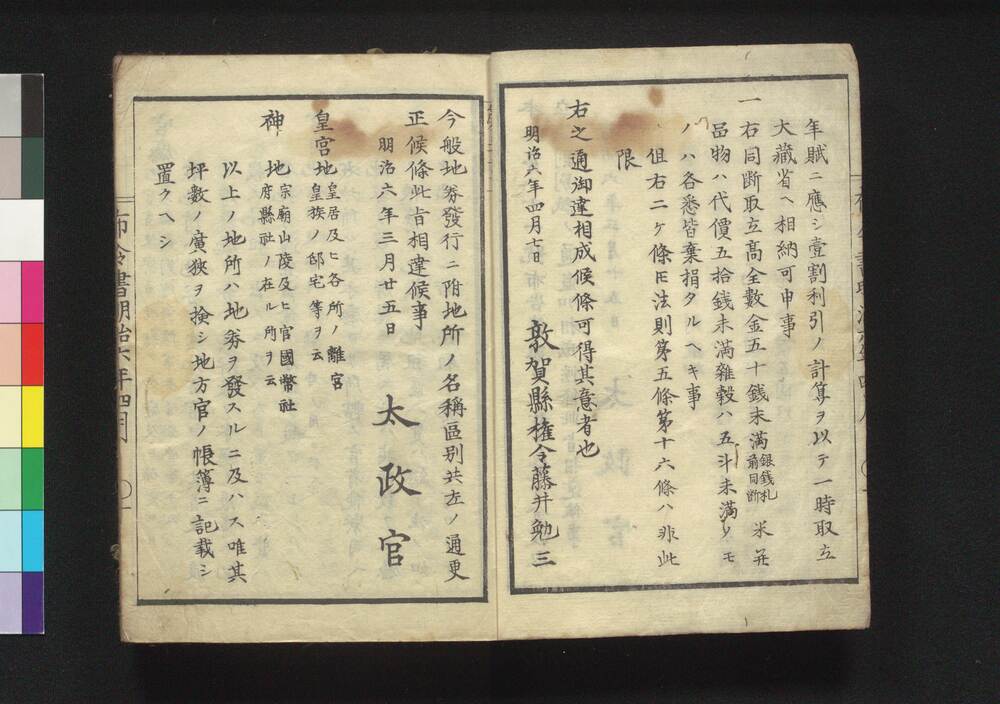 年賦ニ應シ壹割利引ノ計算ヲ以テ一時取立
大藏省ヘ相納可申事
一 右同断取立高全數金五十銭未満銀銭札前同断米并
品物ハ代價五拾銭未満雜穀ハ五斗未満ノモ
ノハ各悉皆棄捐タルヘキ事
但右二ケ條𪜈法則第五條第十六條ハ非此
限
右之通御達相成候條可得其意者也
明治六年四月七日 敦賀縣権令藤井勉三
今般地券發行ニ附地所ノ名稱區別共左ノ通更
正候條此旨相達候事
明治六年三月廿五日 太政官
皇宮地 皇居及ヒ各所ノ離宮
皇族ノ邸宅等ヲ云
神地 宗廟山陵及ヒ官國幣社
府縣社ノ在ル所ヲ云
以上ノ地所ハ地券ヲ發スルニ及ハス唯其
坪數ノ廣狹ヲ検シ地方官ノ帳簿ニ記載シ
置クヘシ
布令書明治六年四月